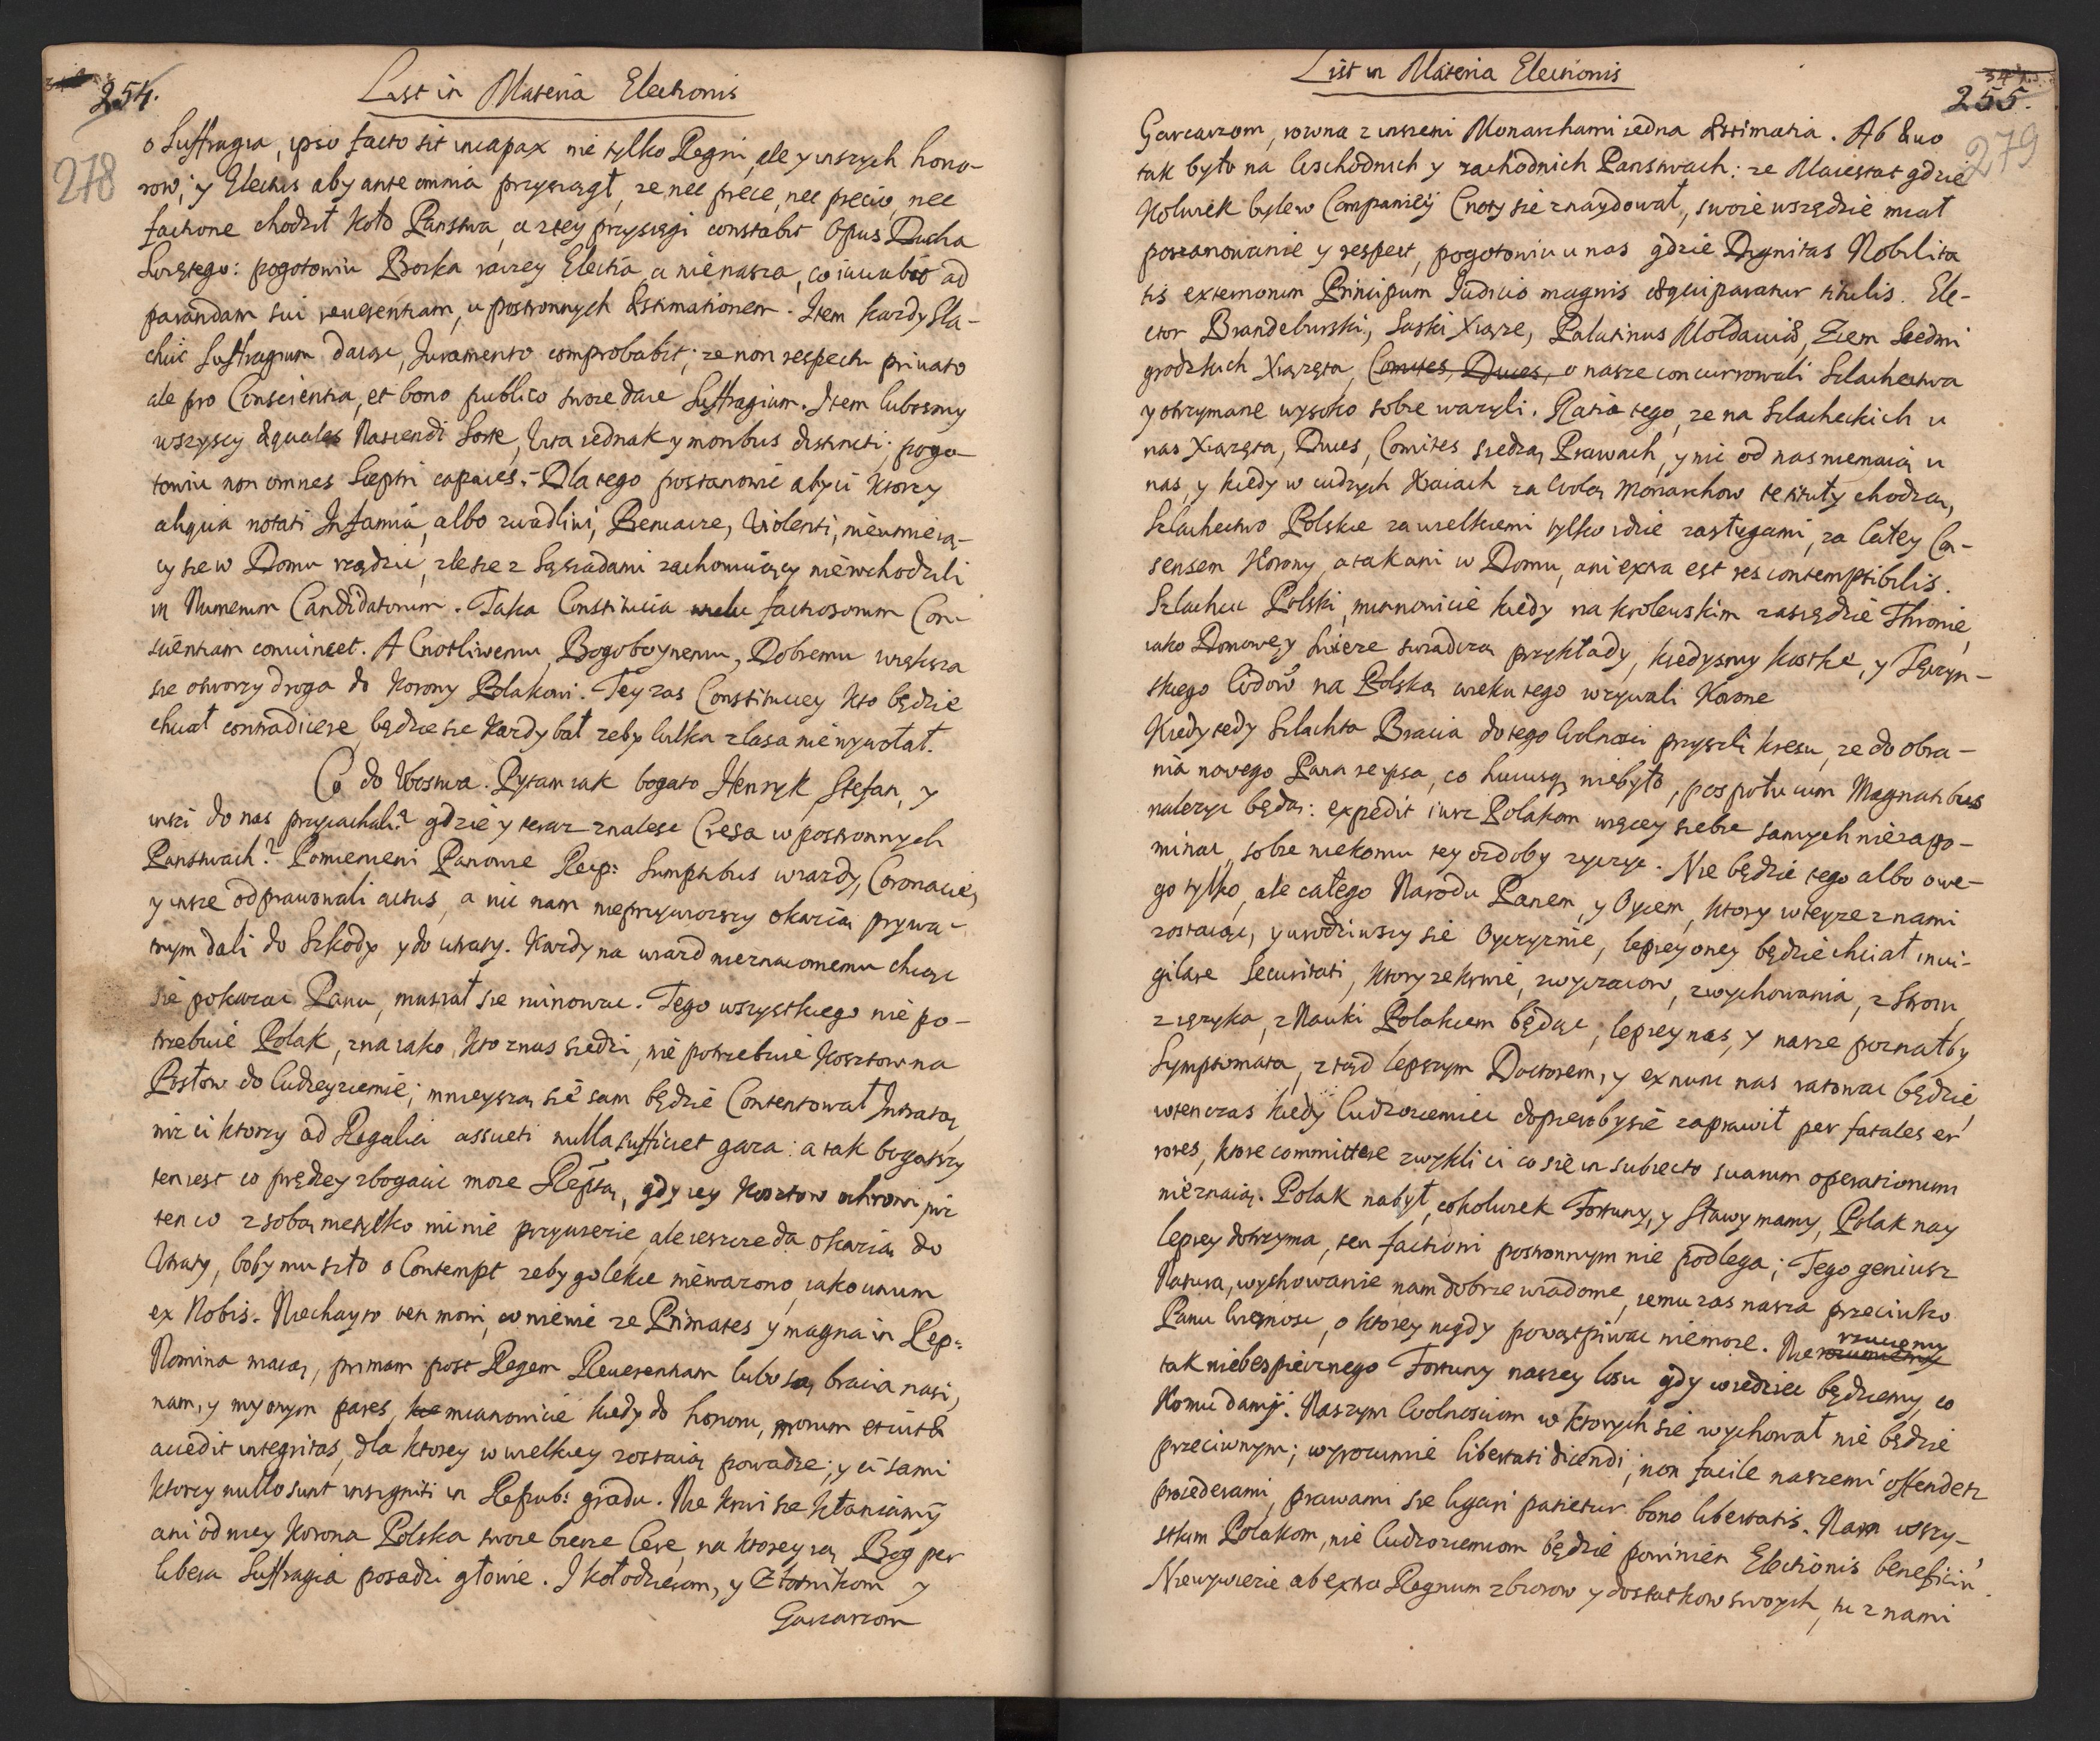 254.
List in Materia Electionis
278
o Suffragia, ipso facto sit incapax nie tylko Regni, ale y inszych hono-
row; y Electus aby ante omnia przysiągł, ze nec prece, nec precio, nec
factione chodził koło Panstwa, a z tey przysięgi constabit Opus Ducha
Swiętego: pogotowiu Boska raczey Electia, a nie nasza, co iuvabit ad
parandam sui reverentiam, u postronnych Æstimationem. Item kazdy Sla-
chcic Suffragium daiąc, Juramento comprobabit; ze non respectu privato
ale pro Conscientia, et bono publico swoie daie Suffragium. Item lubosmy
wszyscy æquales Nascendi Sorte, Vita iednak y moribus distincti; pogo-
towiu non omnes Sceptri capaces. Dla tego postanowic aby ci ktorzy
aliqua notati Infamia, albo zwadliwi, Pieniacze, Violenti, nieumieią-
cy sie w Domu rządzic, zle sie z Sąsiadami zachowuiący nie wchodzili
in Numerum Candidatorum. Taka Constitucia wielu factiosorum Con-
scientiam convincet. A Cnotliwemu, Bogoboynemu, Dobremu większa
sie otworzy droga do Korony Polakowi. Tey zas Constitucey kto będzie
chciał contradicere, będzie sie kazdy bał zeby wilka z lasa nie wywołał.
Co do Ubostwa. Pytam iak bogato Henryk, Stefan, y
inszi do nas przyiachali? gdzie y teraz znalesc Cresa w postronnych
Panstwach? Pomienieni Panowie Reip: Sumptibus wiazdy, Coronacie,
y insze odprawowali actus, a nic nam nieprzywiozszy okazią prywa-
tnym dali do Szkody y do utraty. Kazdy na wiazd nieznaiomemu chcąc
się pokazac Panu, musiał sie ruinowac. Tego wszystkiego nie po-
trzebuie Polak, zna iako, kto z nas siedzi, nie potrzebuie kosztow na
Posłow do Cudzey ziemie; mnieyszą się sam będzie Contentował Intratą
niz ci ktorzy ad Regalia assueti nulla sufficiet gaza: a tak bogatszy
ten iest co prędzey zbogacic moze Ręptą, gdy iey kosztow ochroni niz
ten co z sobą nietylko nic nie przywiezie, ale ieszcze da okazią do
Utraty, boby mu szło o Contempt zeby go lekce niewazono, iako unum
ex Nobis. Niechayto ten mowi, co niewie ze Primates y magna in Rep:
Nomina maią, primam post Regem Reverentiam lubo są bracia nasi,
nam, y my onym pares, mianowicie kiedy do honoru, morum et vitæ
accedit integritas, dla ktorey w wielkiey zostaią powadze; y ci sami
ktorzy nullo sunt insigniti in Repub: gradu. Nie krwi sie kłaniamy
ani od niey Korona Polska swoie bierze Cerę, na ktorey ią Bog per
libera Suffragia posadzi głowie. I kołodzieiom, y Złotnikom y
Garcarzom
List in Materia Electionis
255.
279
Garcarzom, rowna z inszemi Monarchami iedna Æstimatia. Ab Ævo
tak było na Wschodnich y zachodnich Panstwach: ze Maiestat gdzie
Kolwiek byle w Companiey Cnoty sie znaydował, swoie wszędzie miał
poszanowanie y respect, pogotowiu u nas gdzie Dignitas Nobilita
tis externorum Principum Iudicio magnis æquiparatur titulis. Ele-
ctor Brandeburski, Saski Xiąze, Palatinus Moldaviæ, Ziem Siedmi
grodzkich Xiązęta, Comites, Duces, o nasze concurrowali Szlachectwa
y otrzymane wysoko sobie wazyli. Ratia tego, ze na Szlacheckich u
nas Xiązęta, Duces, Comites siedzą Prawach, y nic od nas niemaią u
nas, y kiedy w cudzych Kraiach za Wolą Monarchow te tituły chodzą,
Szlachectwo Polskie za wielkiemi tylko idzie zasługami, za Całey Con-
sensem Korony, a tak ani w Domu, ani extra est res contemptibilis.
Szlachcic Polski, mianowicie kiedy na krolewskim zasiędzie Thronie,
iako Domowe, y Swieze swiadczą przykłady, kiedysmy Kostkę, y Tęczyn-
skiego Wodow na Polską wieku tego wzywali Koronę
Kiedy tedy Szlachta Bracia do tego Wolnosci przyszli kresu, ze do obra-
nia nowego Pana re ipsa, co hucusq; niebyło, pospołu cum Magnatibus
nalezyc będą: expedit iusz Polakom więcey siebie samych nie zapo-
minac, sobie niekomu tey ozdoby zyczyc. Nie będzie tego albo owe-
go tylko, ale całego Narodu Panem, y Oycem, ktory w teyze z nami
zostaiąc, y urodziwszy się Oyczyznie, lepiey oney będzie chciał invi-
gilare Securitati, ktory ze krwie, zwyczaiow, z wychowania, z Stroiu
z ięzyka, z Nauki Polakiem będąc, lepiey nas, y nasze poznałby
Symptomata, ztąd lepszym Doctorem, y ex nunc nas ratowac będzie,
wtenczas kiedy Cudzoziemiec dopierobysię zaprawił per fatales er
rores, ktore committere zwykli ci co się in subiecto suarum operationum
nieznaią. Polak nabył, cokolwiek Fortuny, y Sławy mamy, Polak nay
lepiey dotrzyma, ten factiom postronnym nie podlega; Tego geniusz
Natura, wychowanie nam dobrze wiadome, iemu zas nasza przeciwko
Panu Wiernosc, o ktorey nigdy powątpiwac niemoze. Nie rzucemy
tak niebespiecznego Fortuny naszey losu gdy wiedziec będziemy, co
Komu damy. Naszym Wolnosciom w ktorych sie wychował nie będzie
przeciwnym; wyrozumie libertati dicendi; non facile naszemi offendetur
procederami, prawami sie ligari patietur bono libertatis. Nam wszy-
stkim Polakom, nie Cudzoziemcom będzie powinien Electionis beneficiu
Niewywiezie ab extra Regnum zbiorow y dostatkow swoych, tu z nami